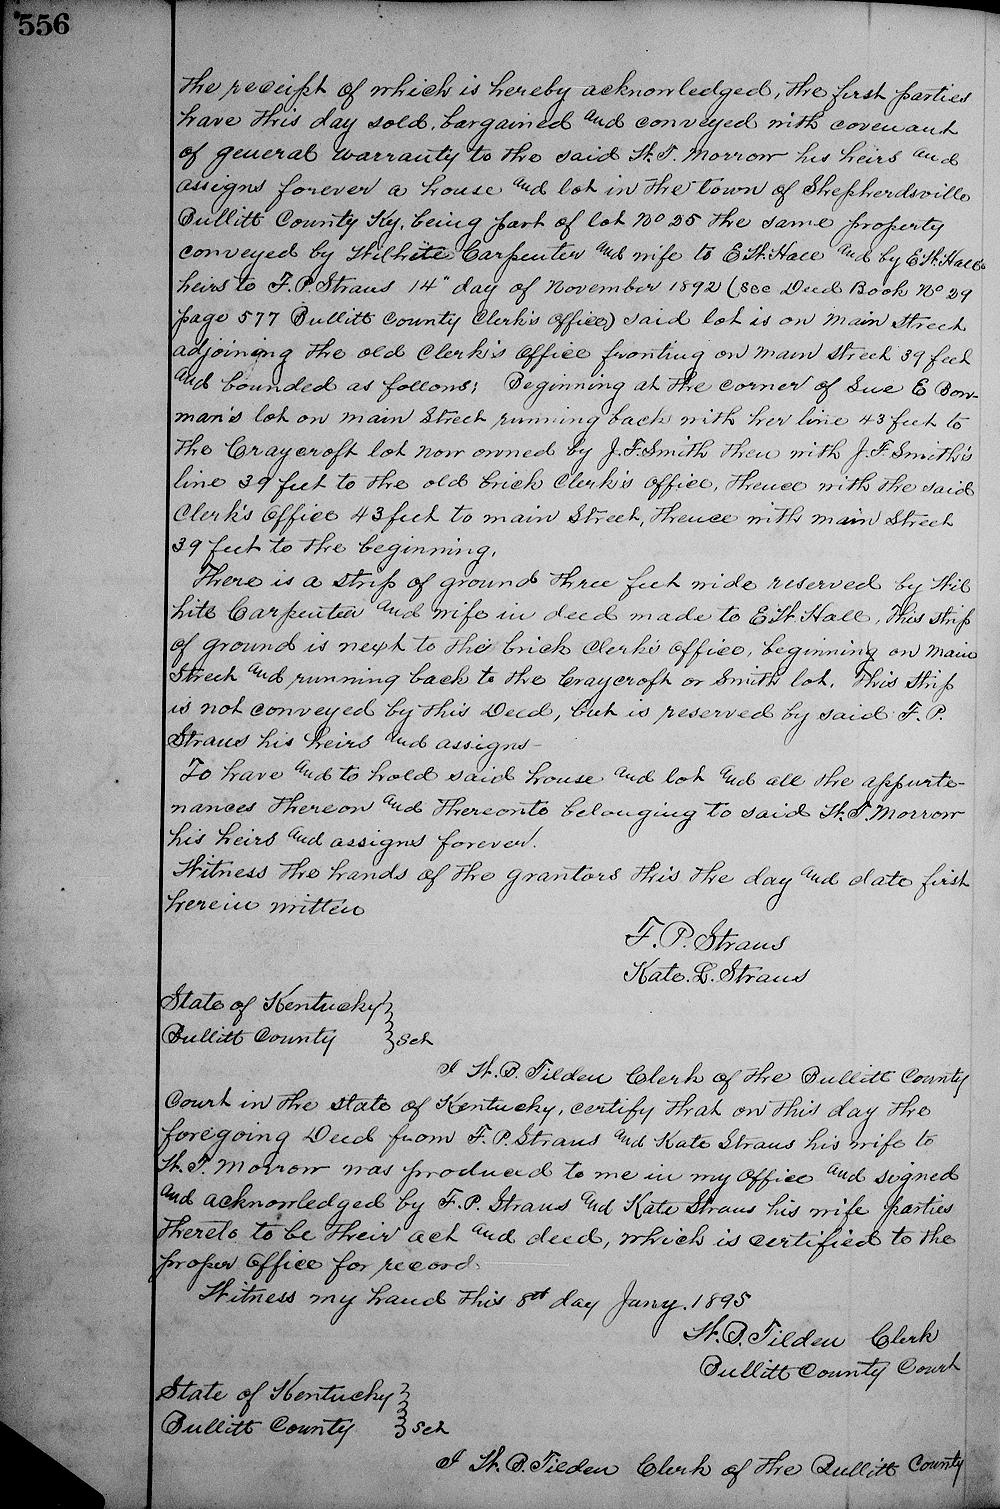 556
The receipt of which is hereby acknowledged, the first parties
have this day sold, bargained and conveyed with covenant
of general warranty to the said W. T. Morrow his heirs and
assigns forever a house and lot in the town of Shepherdsville
Bullitt County Ky. being part of lot No 25 the same property
conveyed by Wilhite Carpenter and wife to E W. Hall and by E W. Hall's
heirs to F. P. Straus 14" day of November 1892 (see Deed Book No 29
page 577 Bullitt County Clerk's Office) said lot is on Main Street
adjoining the old Clerk's Office fronting on Main Street 39 feet
and bounded as follows; Beginning at the corner of Sue E Bow-
man's lot on Main Street running back with her line 43 feet to
the Craycroft lot now owned by J. F. Smith then with J. F. Smith's
line 39 feet to the old brick Clerk's Office, thence with the said
Clerk's Office 43 feet to Main Street, thence with Main Street
39 feet to the beginning.
There is a strip of ground three feet wide reserved by Wil
hite Carpenter and wife in deed made to E W. Hall, This strip
of ground is next to the brick Clerk's Office, beginning on Main
Street and running back to the Craycroft or Smith lot. This strip
is not conveyed by this Deed, but is reserved by said F. P.
Straus his heirs and assigns -
To have and to hold said house and lot and all the appurte-
nances thereon and thereonto belonging to said W. T. Morrow
his heirs and assigns forever.
Witness the hands of the grantors this the day and date first
herein written
F. P. Straus
Kate. L. Straus
State of Kentucky }
Bullitt County } Sct
I W. B. Tilden Clerk of the Bullitt County
Court in the state of Kentucky, certify that on this day the
foregoing Deed from F. P. Straus and Kate Straus his wife to
W. T. Morrow was produced to me in my Office and signed
and acknowledged by F. P. Straus and Kate Straus his wife parties
thereto to be their act and deed, which is certified to the
proper Office for record.
Witness my hand this 8th day Jany. 1895
W. B. Tilden Clerk
Bullitt County Court
State of Kentucky }
Bullitt County } Sct
I W. B. Tilden Clerk of the Bullitt County